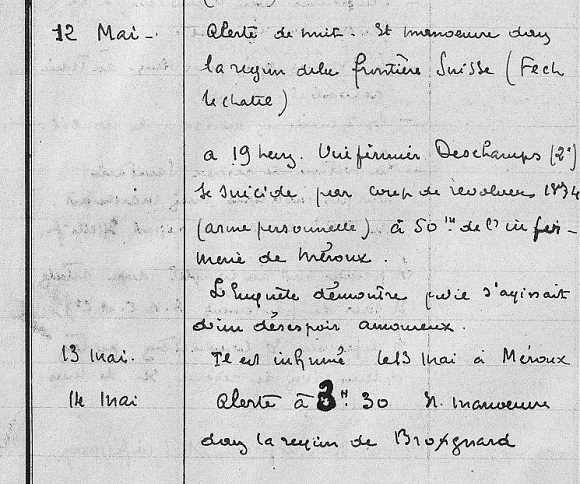 12 Mai - Alerte de nuit - et manoeuvre dans
la region de la frontière Suisse (Fech
le chatel)
a 19 heures. L'infirmier Deschamps (2e)
se suicide par coup de révolver 1894
(arme personnelle) à 50m de l'infir-
merie de Méroux.
L'Enquête démontre qu'il s'agissait
d'un désespoir amoureux.
13 Mai. Il est inhumé le 13 Mai à Méroux
14 Mai Alerte à 3H 30 et manoeuvre
dans la region de Brognard